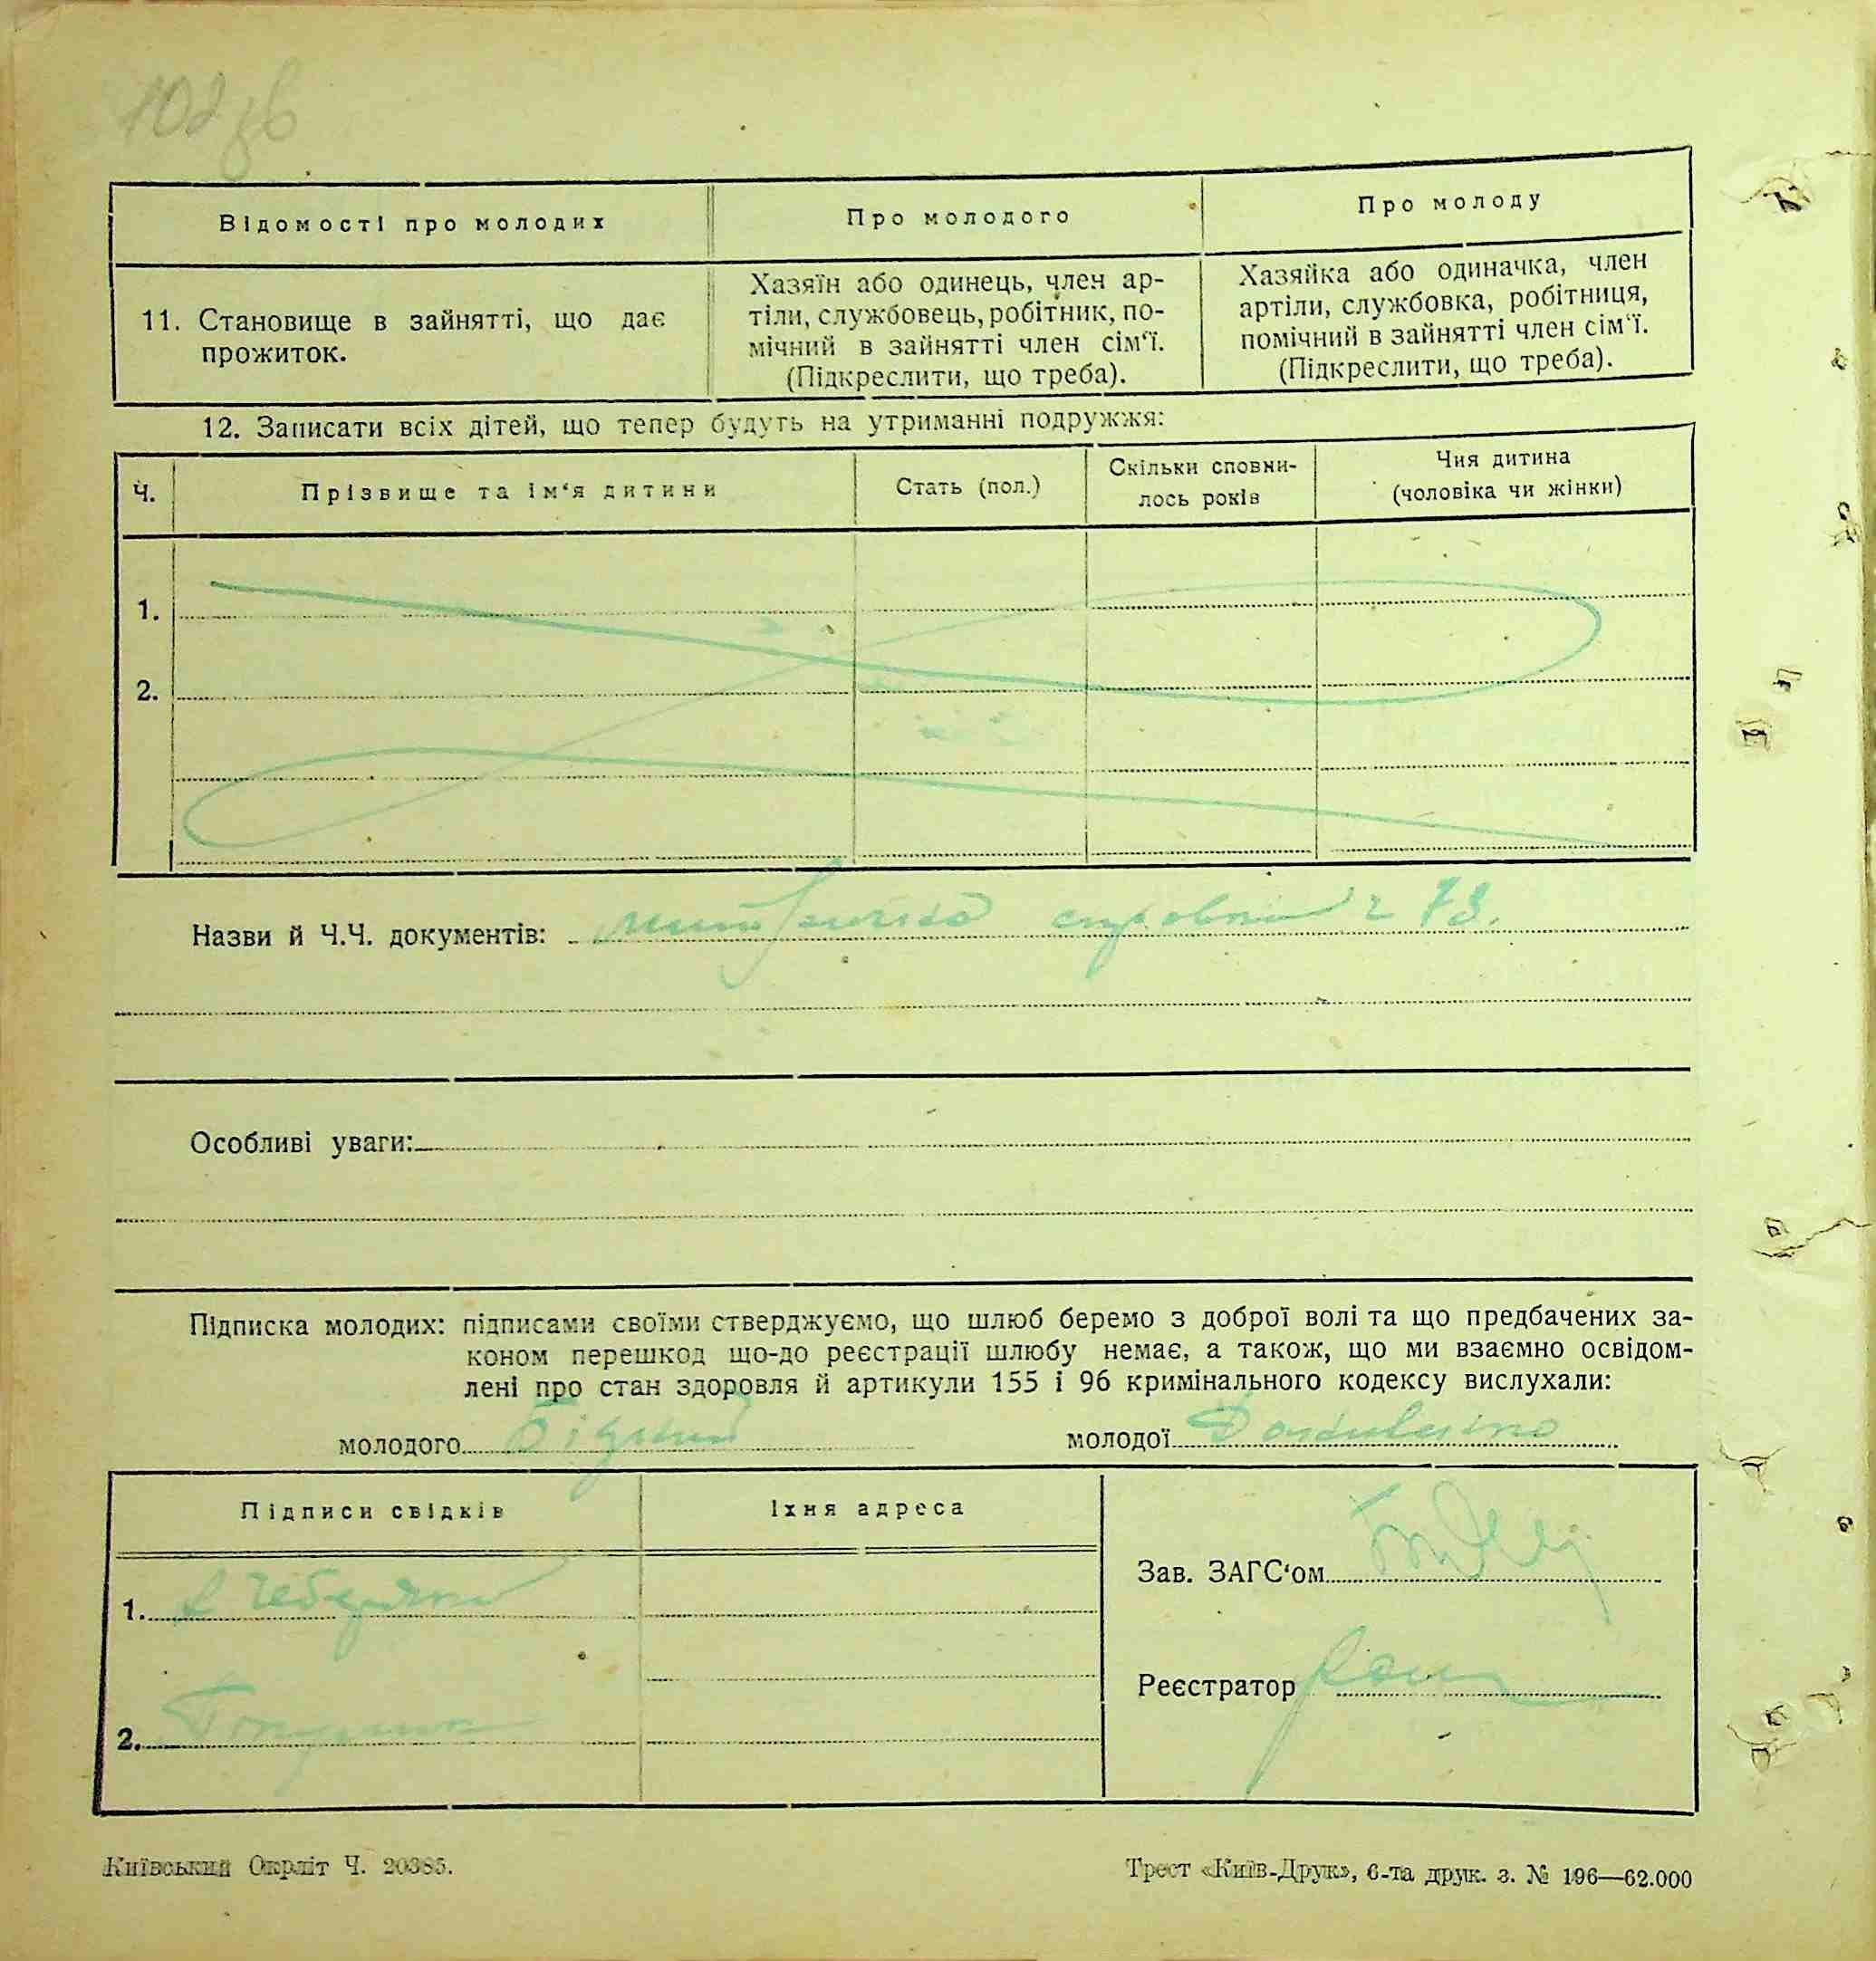 102 зв
Відомості про молодих
Про молодого
Про молоду
11. Становище в зайнятті, що дає
прожиток.
Хазяїн або одинець, член ар-
тіли, службовець, робітник, по-
мічний в зайнятті член сім‘ї.
(Підкреслити, що треба).
Хазяйка або одиначка, член
артіли, службовка, робітниця,
помічний в зайнятті член сім‘ї.
(Підкреслити, що треба).
12. Записати всіх дітей, що тепер будуть на утриманні подружжя:
Ч.
Прізвище та ім‘я дитини
Стать (пол.)
Скільки сповни-
лось років
Чия дитина
(чоловіка чи жінки)
1.
2.
Назви й Ч.Ч. документів: 73.
Особливі уваги:
Підписка молодих: підписами своїми стверджуємо, що шлюб беремо з доброї волі та що предбачених за-
коном перешкод що-до реєстрації шлюбу немає, а також, що ми взаємно освідом-
лені про стан здоровля й артикули 155 і 96 кримінального кодексу вислухали:
молодого
молодої
Підписи свідків
Їхня адреса
1.
2.
Зав. ЗАГС‘ом
Реєстратор
Київський Окрліт Ч. 20385.
Трест «Київ-Друк», 6-та друк. з. № 196—62.000